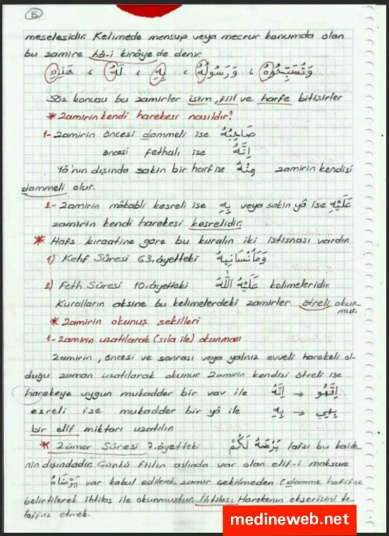 6
meselesidir. Kelimede mensup veya mecrur konumda olan
bu zamire hâ-i kinâye de denir
وَتُسَبِّحُوهُ ، وَرَسُولُهُ ، بِهِ ، لَهُ ، مِنْهُ
Söz konusu bu zamirler isim, fiil ve harfe bitişirler
* Zamirin kendi harekesi nasıldır?
1- Zamirin öncesi dammeli ise صَاحِبُهُ
öncesi fethalı ise إِنَّهُ
Yâ'nın dışında sakin bir harf ise مِنْهُ zamirin kendisi
dammeli olur.
2- Zamirin mâkabli kesreli ise بِهِ veya sakin yâ ise عَلَيْهِ
zamirin kendi harekesi kesrelidir.
* Hafs kıraatine göre bu kuralın iki istisnası vardır
1) Kehf Sûresi 63. âyetteki وَمَا أَنْسَانِيهُ
2) Feth Sûresi 10. âyetteki عَلَيْهُ اللّٰهَ kelimeleridir.
Kuralların aksine bu kelimelerdeki zamirler ötreli okun-
mur.
* Zamirin okunuş şekilleri
1- Zamirin uzatılarak (sıla ile) okunması
Zamirin, öncesi ve sonrası veya yalnız evveli harekeli ol-
duğu zaman uzatılarak okunur. Zamirin kendisi ötreli ise
harekeye uygun mukadder bir vav ile إِنَّهُ → إِنَّهُو
esreli ise mukadder bir yâ ile بِهِ → بِهِي
bir elif miktarı uzatılır.
* Zümer Sûresi 7. âyetteki يَرْضَهُ لَكُمْ lafzı bu kaide-
nin dışındadır. Çünkü fiilin aslında var olan elif-i maksure
يَرْضَاهُ var kabul edilerek, zamir çekilmeden (damme hafifçe
belirtilerek ihtilas ile okunmuştur. İhtilas: Harekenin ekserisini te-
laffuz etmek.
medineweb.net